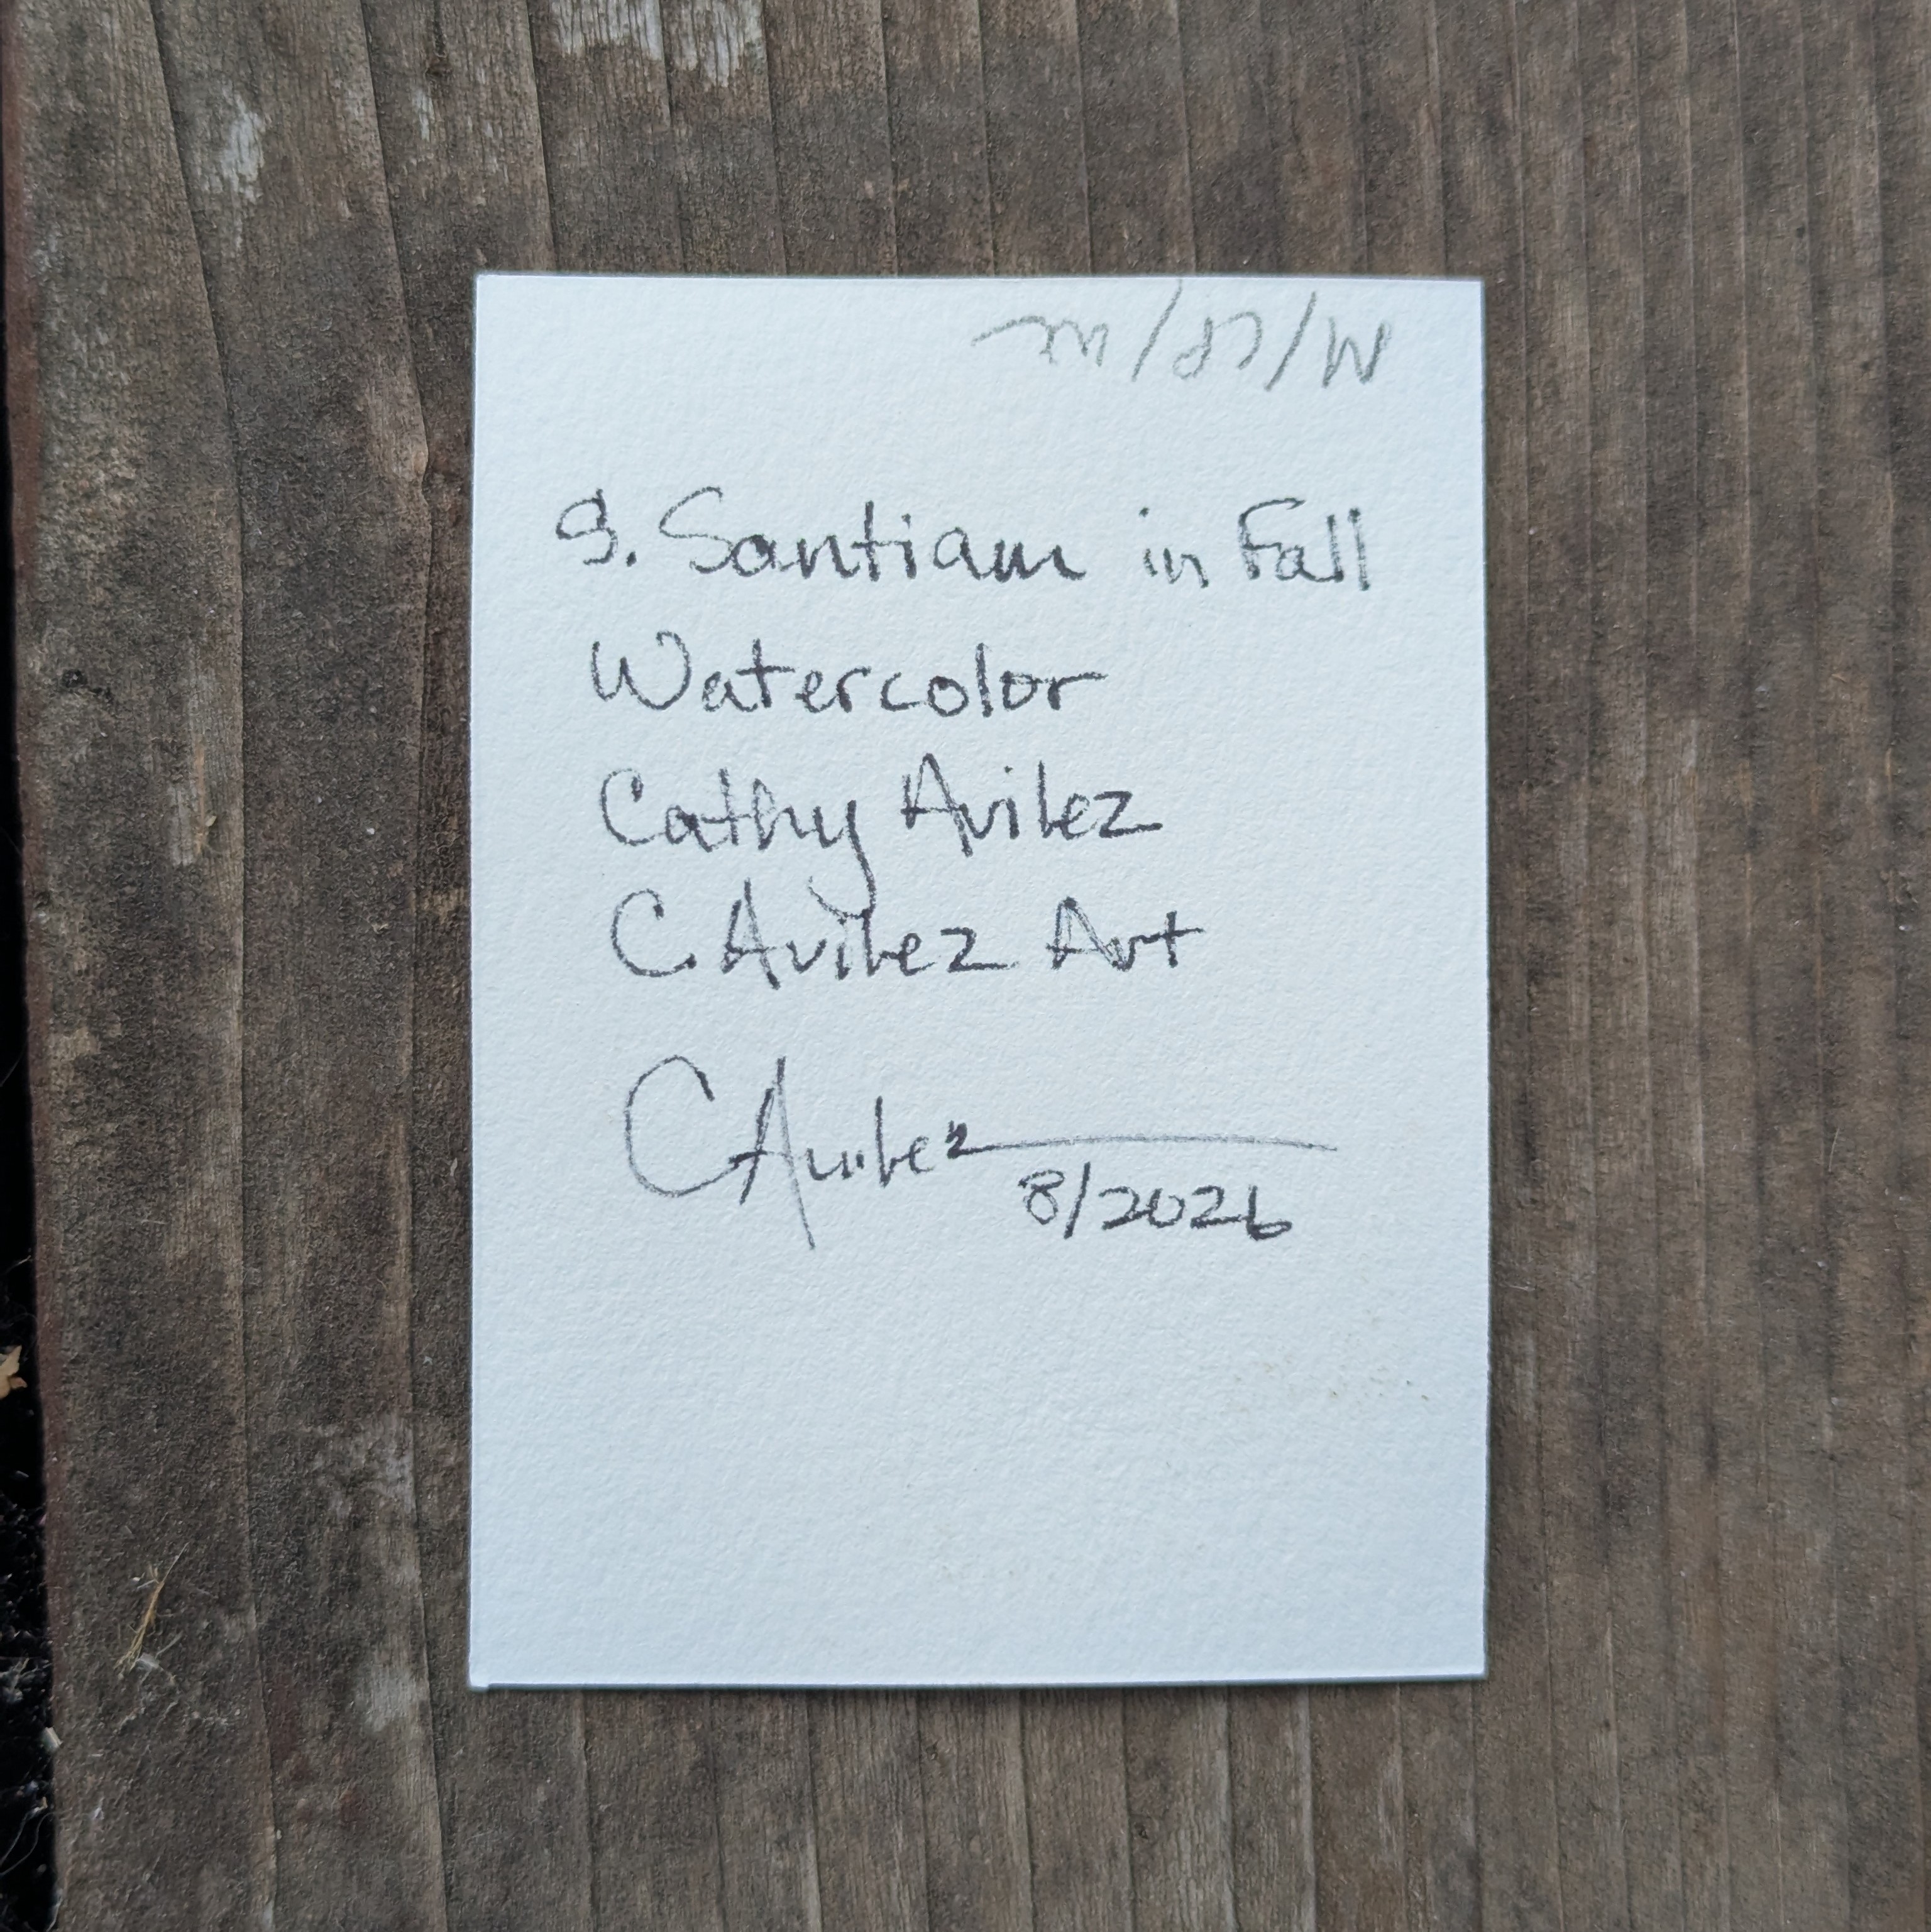 S. Santiam in Fall
Watercolor
Cathy Avilez
C. Avilez Art
CAvilez
8/2026